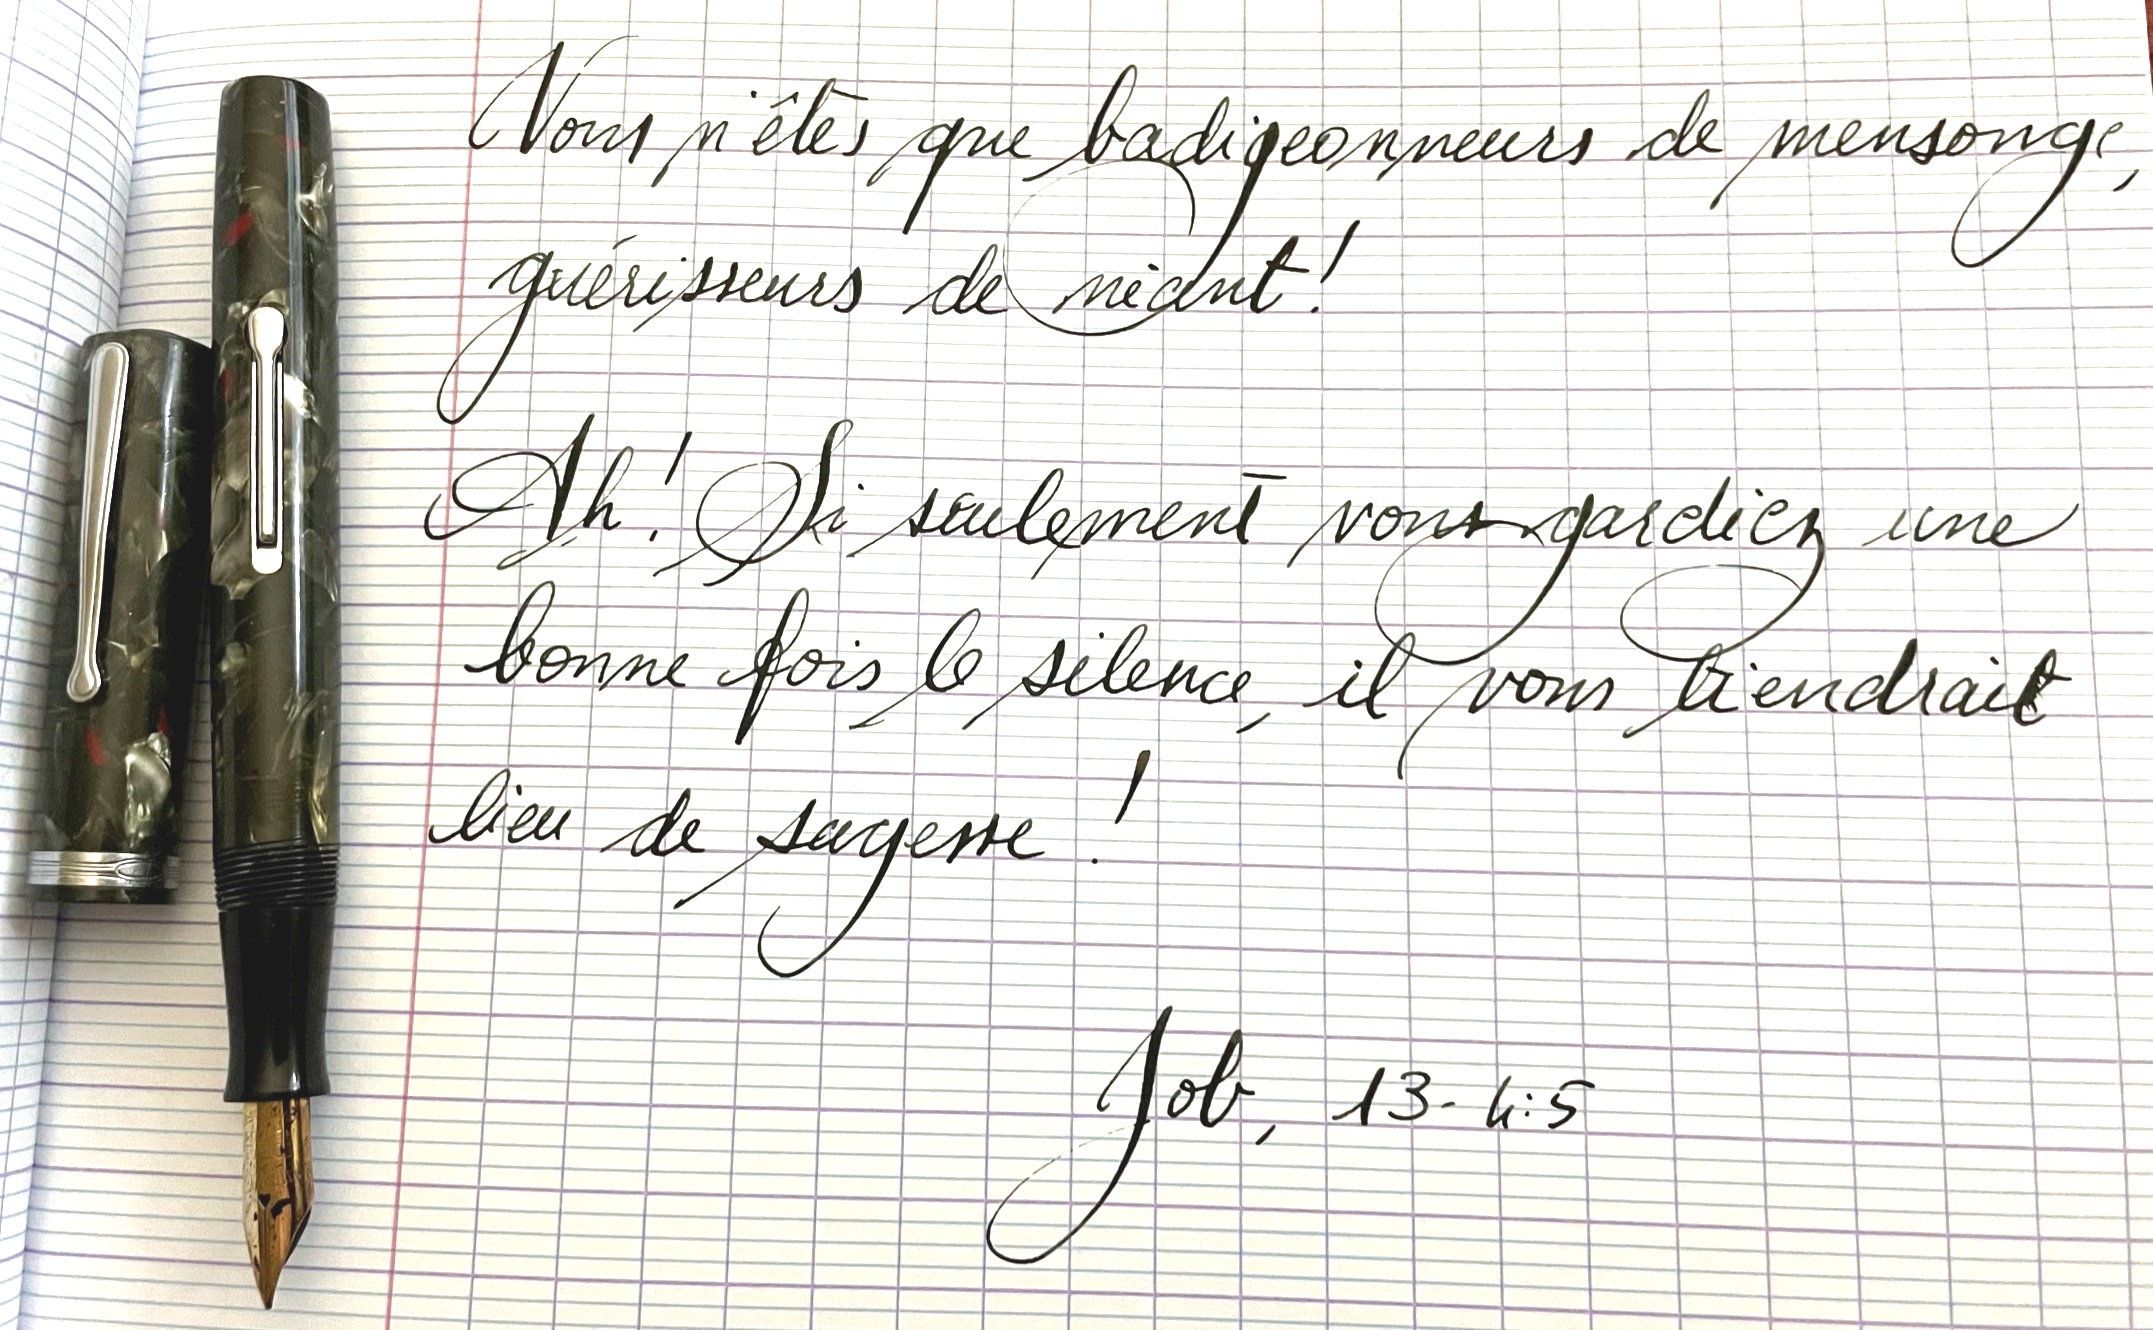 Vous n'êtes que badigeonneurs de mensonge,
guérisseurs de néant!
Ah! Si seulement vous gardiez une
bonne fois le silence, il vous tiendrait
lieu de sagesse!
Job, 13-4:5